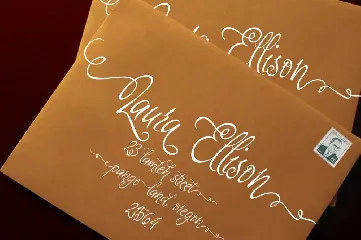 Ellison
Laura Ellison
23 street
pango land oregon
28564